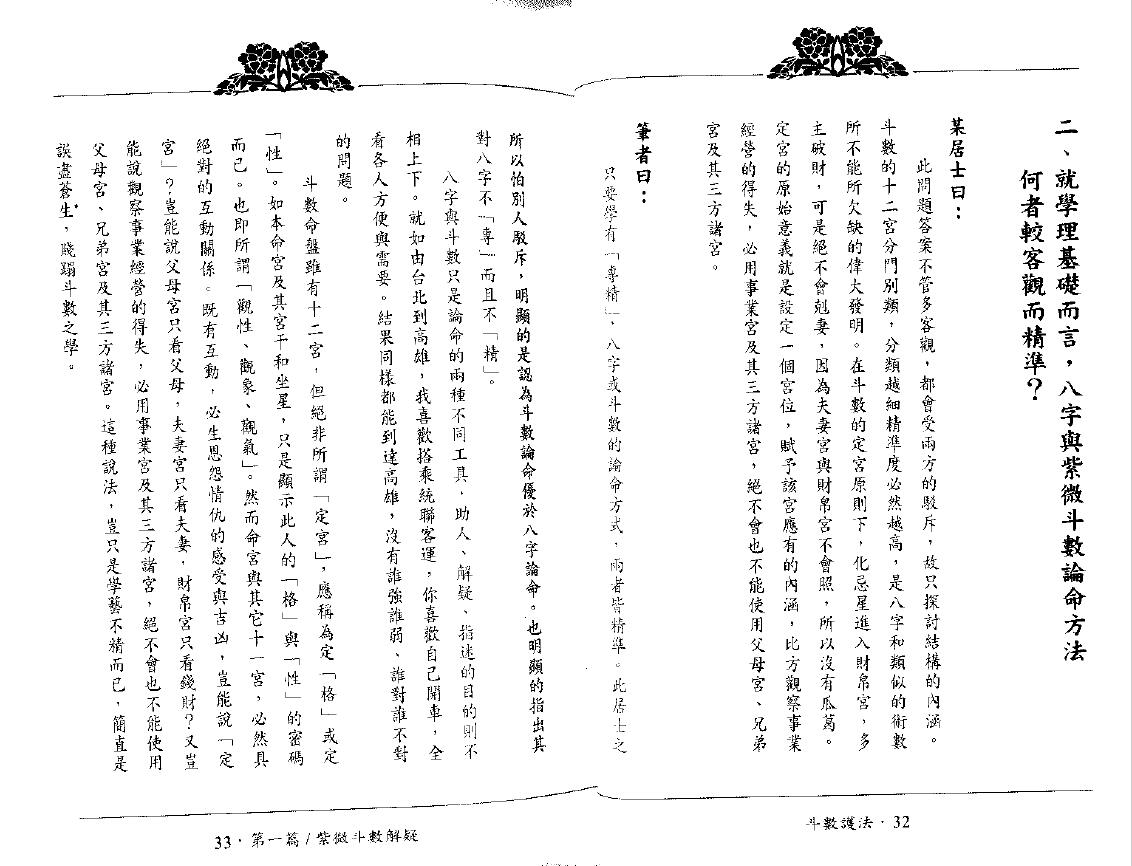 二、就學理基礎而言，八字與紫微斗數論命方法
何者較客觀而精準？
某居士曰：
此問題答案不管多客觀，都會受兩方的駁斥，故只探討結構的內涵。
斗數的十二宮分門別類，分類越細精準度必然越高，是八字和類似的術數
所不能所欠缺的偉大發明。在斗數的定宮原則下，化忌星進入財帛宮，多
主破財，可是絕不會剋妻，因為夫妻宮與財帛宮不會照，所以沒有瓜葛。
定宮的原始意義就是設定一個宮位，賦予該宮應有的內涵，比方觀察事業
經營的得失，必用事業宮及其三方諸宮，絕不會也不能使用父母宮、兄弟
宮及其三方諸宮。
筆者曰：
只要學有「專精」，八字或斗數的論命方式，兩者皆精準。此居士之
所以怕別人駁斥，明顯的是認為斗數論命優於八字論命。也明顯的指出其
對八字不「專」而且不「精」。
八字與斗數只是論命的兩種不同工具，助人、解疑、指迷的目的則不
相上下。就如由台北到高雄，我喜歡搭乘統聯客運，你喜歡自己開車，全
看各人方便與需要。結果同樣都能到達高雄，沒有誰強誰弱、誰對誰不對
的問題。
斗數命盤雖有十二宮，但絕非所謂「定宮」，應稱為定「格」或定
「性」。如本命宮及其宮干和坐星，只是顯示此人的「格」與「性」的密碼
而已。也即所謂「觀性、觀象、觀氣」。然而命宮與其它十一宮，必然具
絕對的互動關係。既有互動，必生恩怨情仇的感受與吉凶，豈能說「定
宮」？豈能說父母宮只看父母，夫妻宮只看夫妻，財帛宮只看錢財？又豈
能說觀察事業經營的得失，必用事業宮及其三方諸宮，絕不會也不能使用
父母宮、兄弟宮及其三方諸宮。這種說法，豈只是學藝不精而已，簡直是
誤盡蒼生，賤蹋斗數之學。
斗數護法・32
33・第一篇/紫微斗數解疑